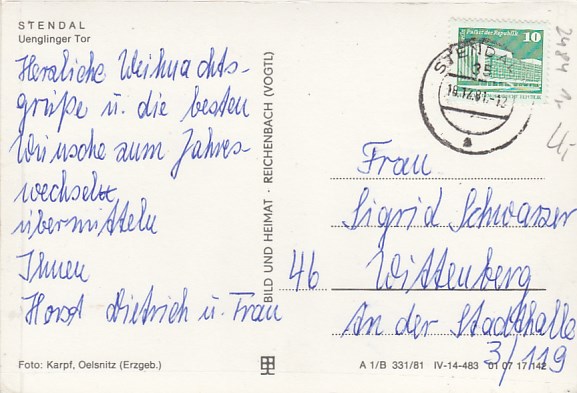 STENDAL
Uenglinger Tor
Herzliche Weihnachts-
grüße u. die besten
Wünsche zum Jahres-
wechsel
übermitteln
Ihnen
Horst Dietrich u. Frau
Foto: Karpf, Oelsnitz (Erzgeb.)
BILD UND HEIMAT · REICHENBACH (VOGTL)
Palast der Republik
10
STENDAL
35
18.12.81.-12
a
2484
Frau
Sigrid Schwarzer
46 Wittenberg
An der Stadthalle
3/119
A 1/B 331/81 IV-14-483 01 07 17/142